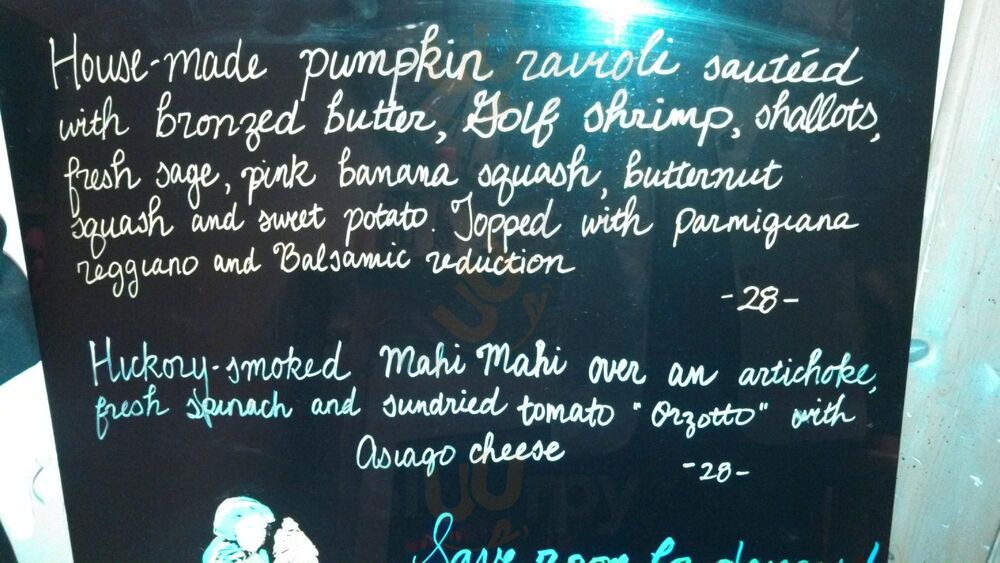 House-made pumpkin ravioli sautéed
with bronzed butter, Golf shrimp, shallots,
fresh sage, pink banana squash, butternut
squash and sweet potato. Topped with parmigiana
reggiano and Balsamic reduction
-28-
Hickory-smoked Mahi Mahi over an artichoke,
fresh spinach and sundried tomato "Orzotto" with
Asiago cheese
-28-
Save room for dessert!